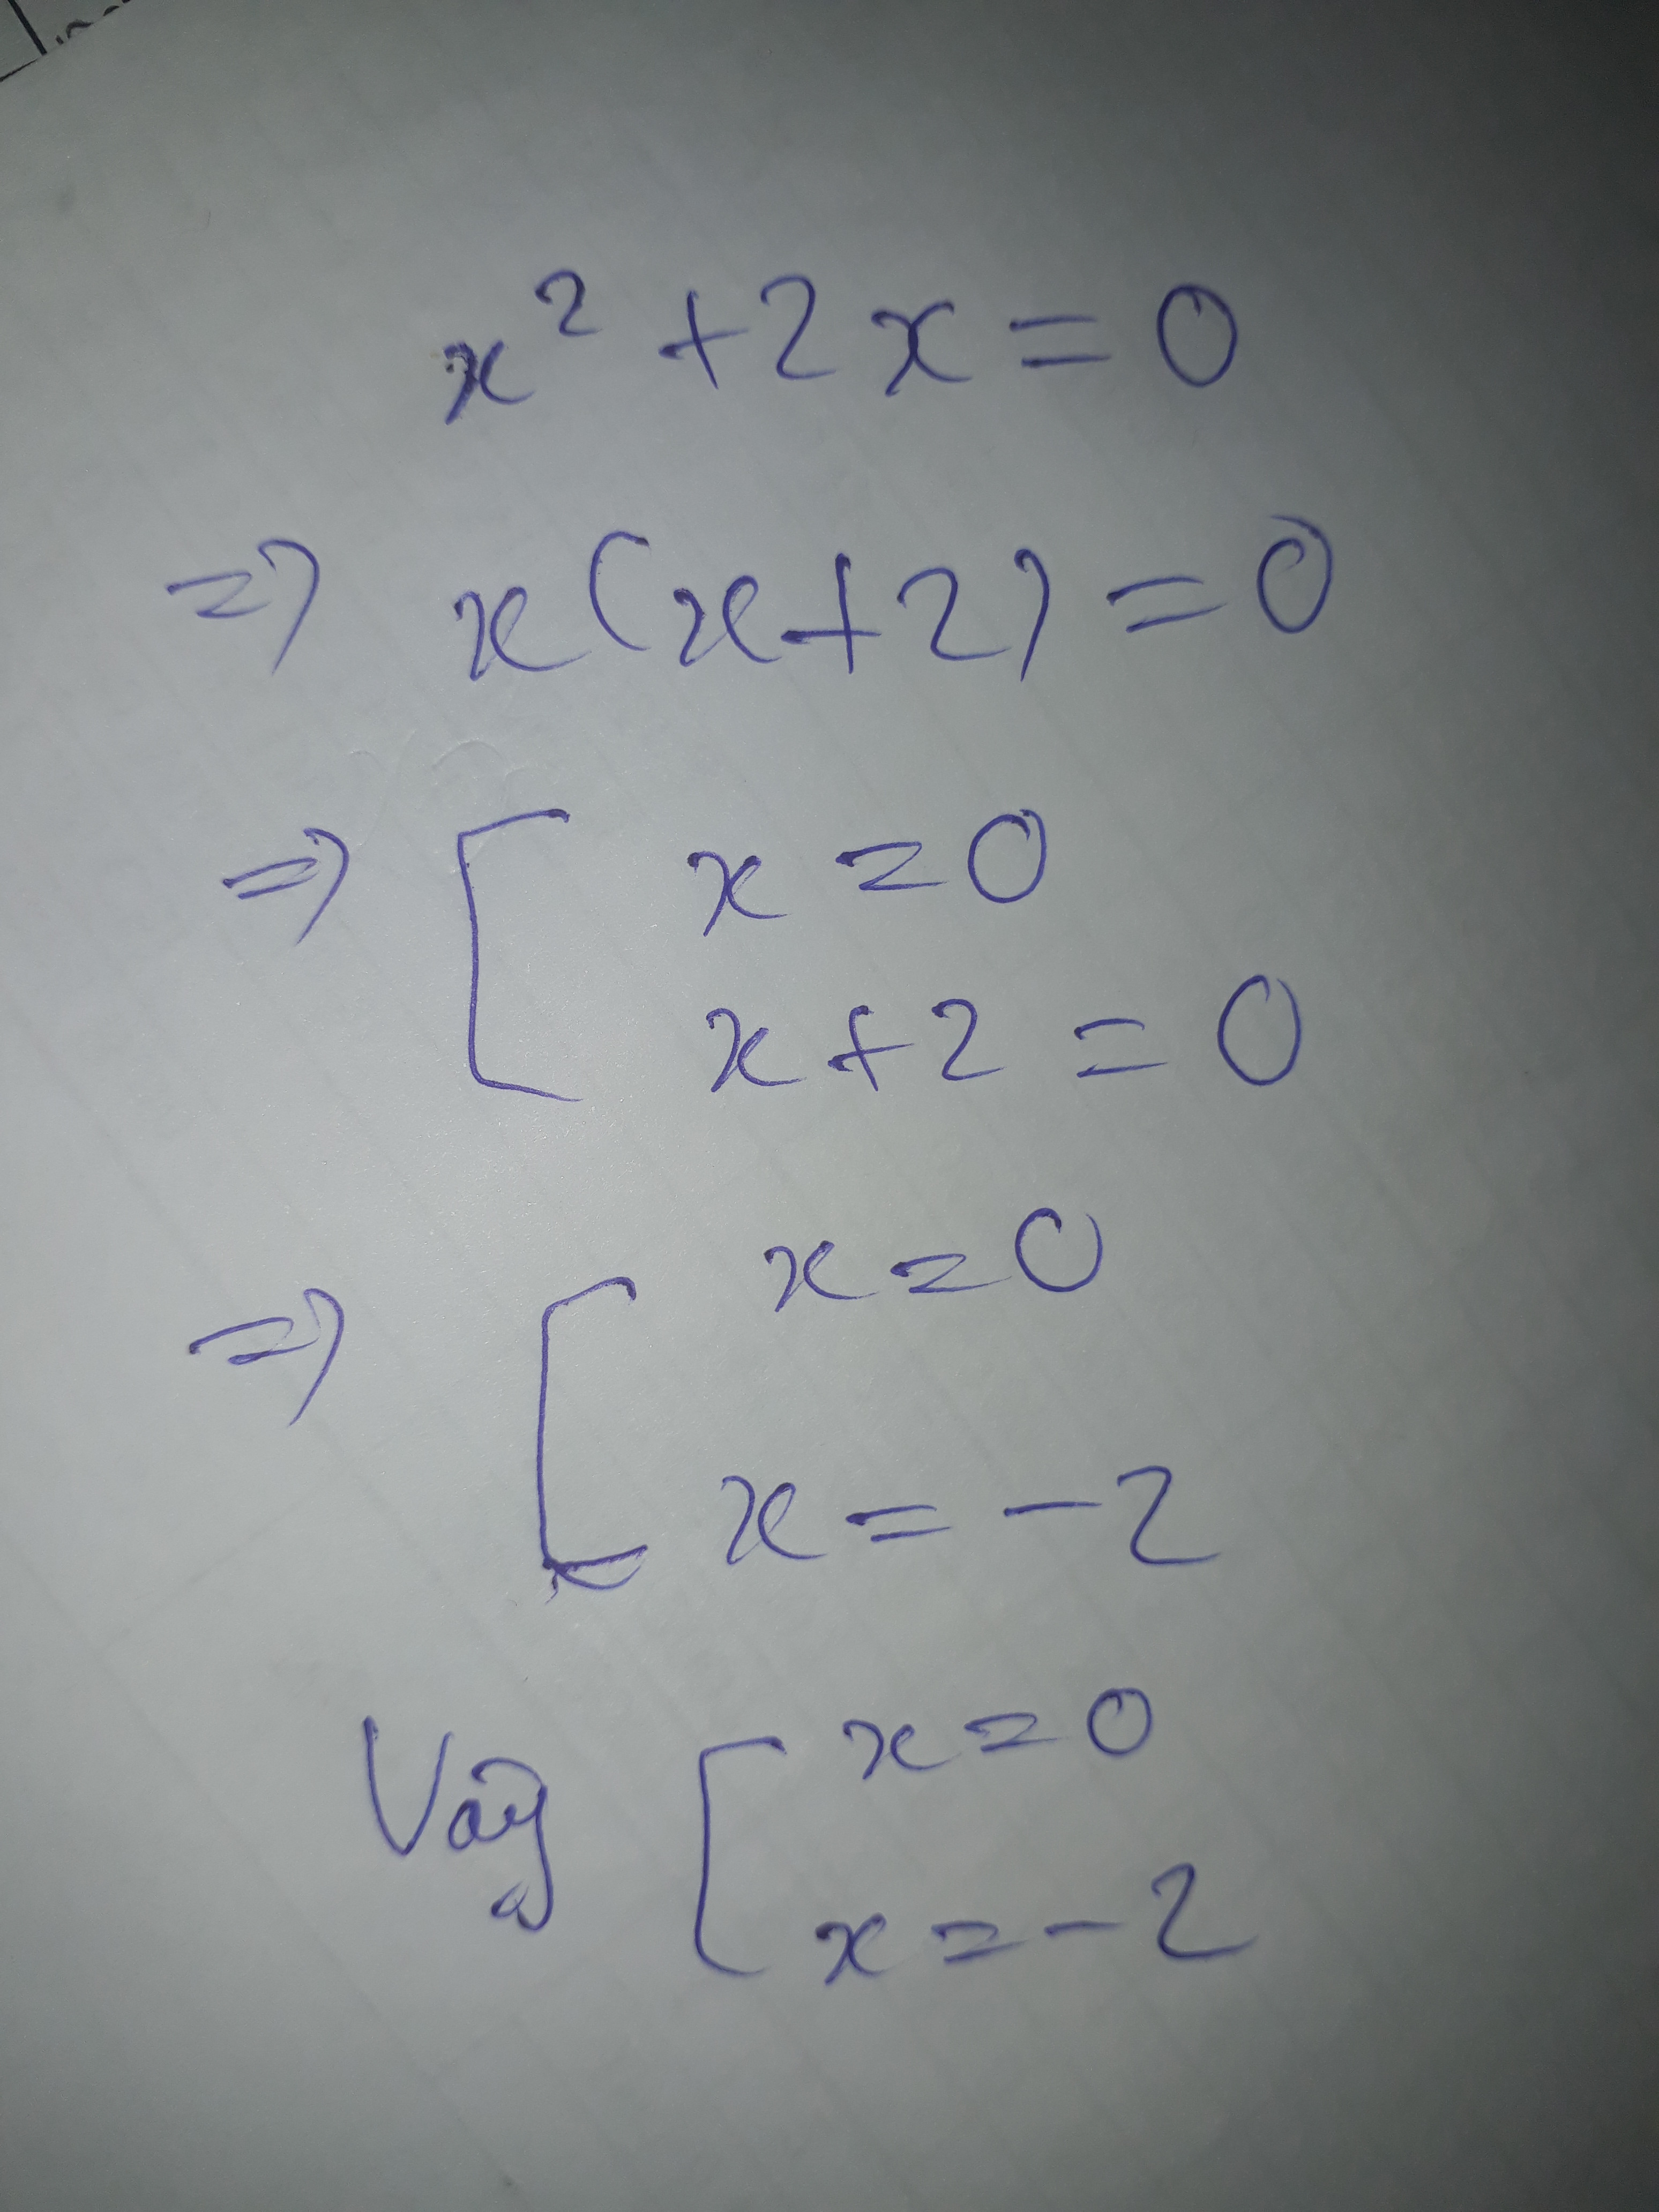 x² + 2x = 0
=> x(x+2) = 0
=> [ x = 0
x + 2 = 0
=> [ x = 0
x = -2
Vậy [ x = 0
x = -2